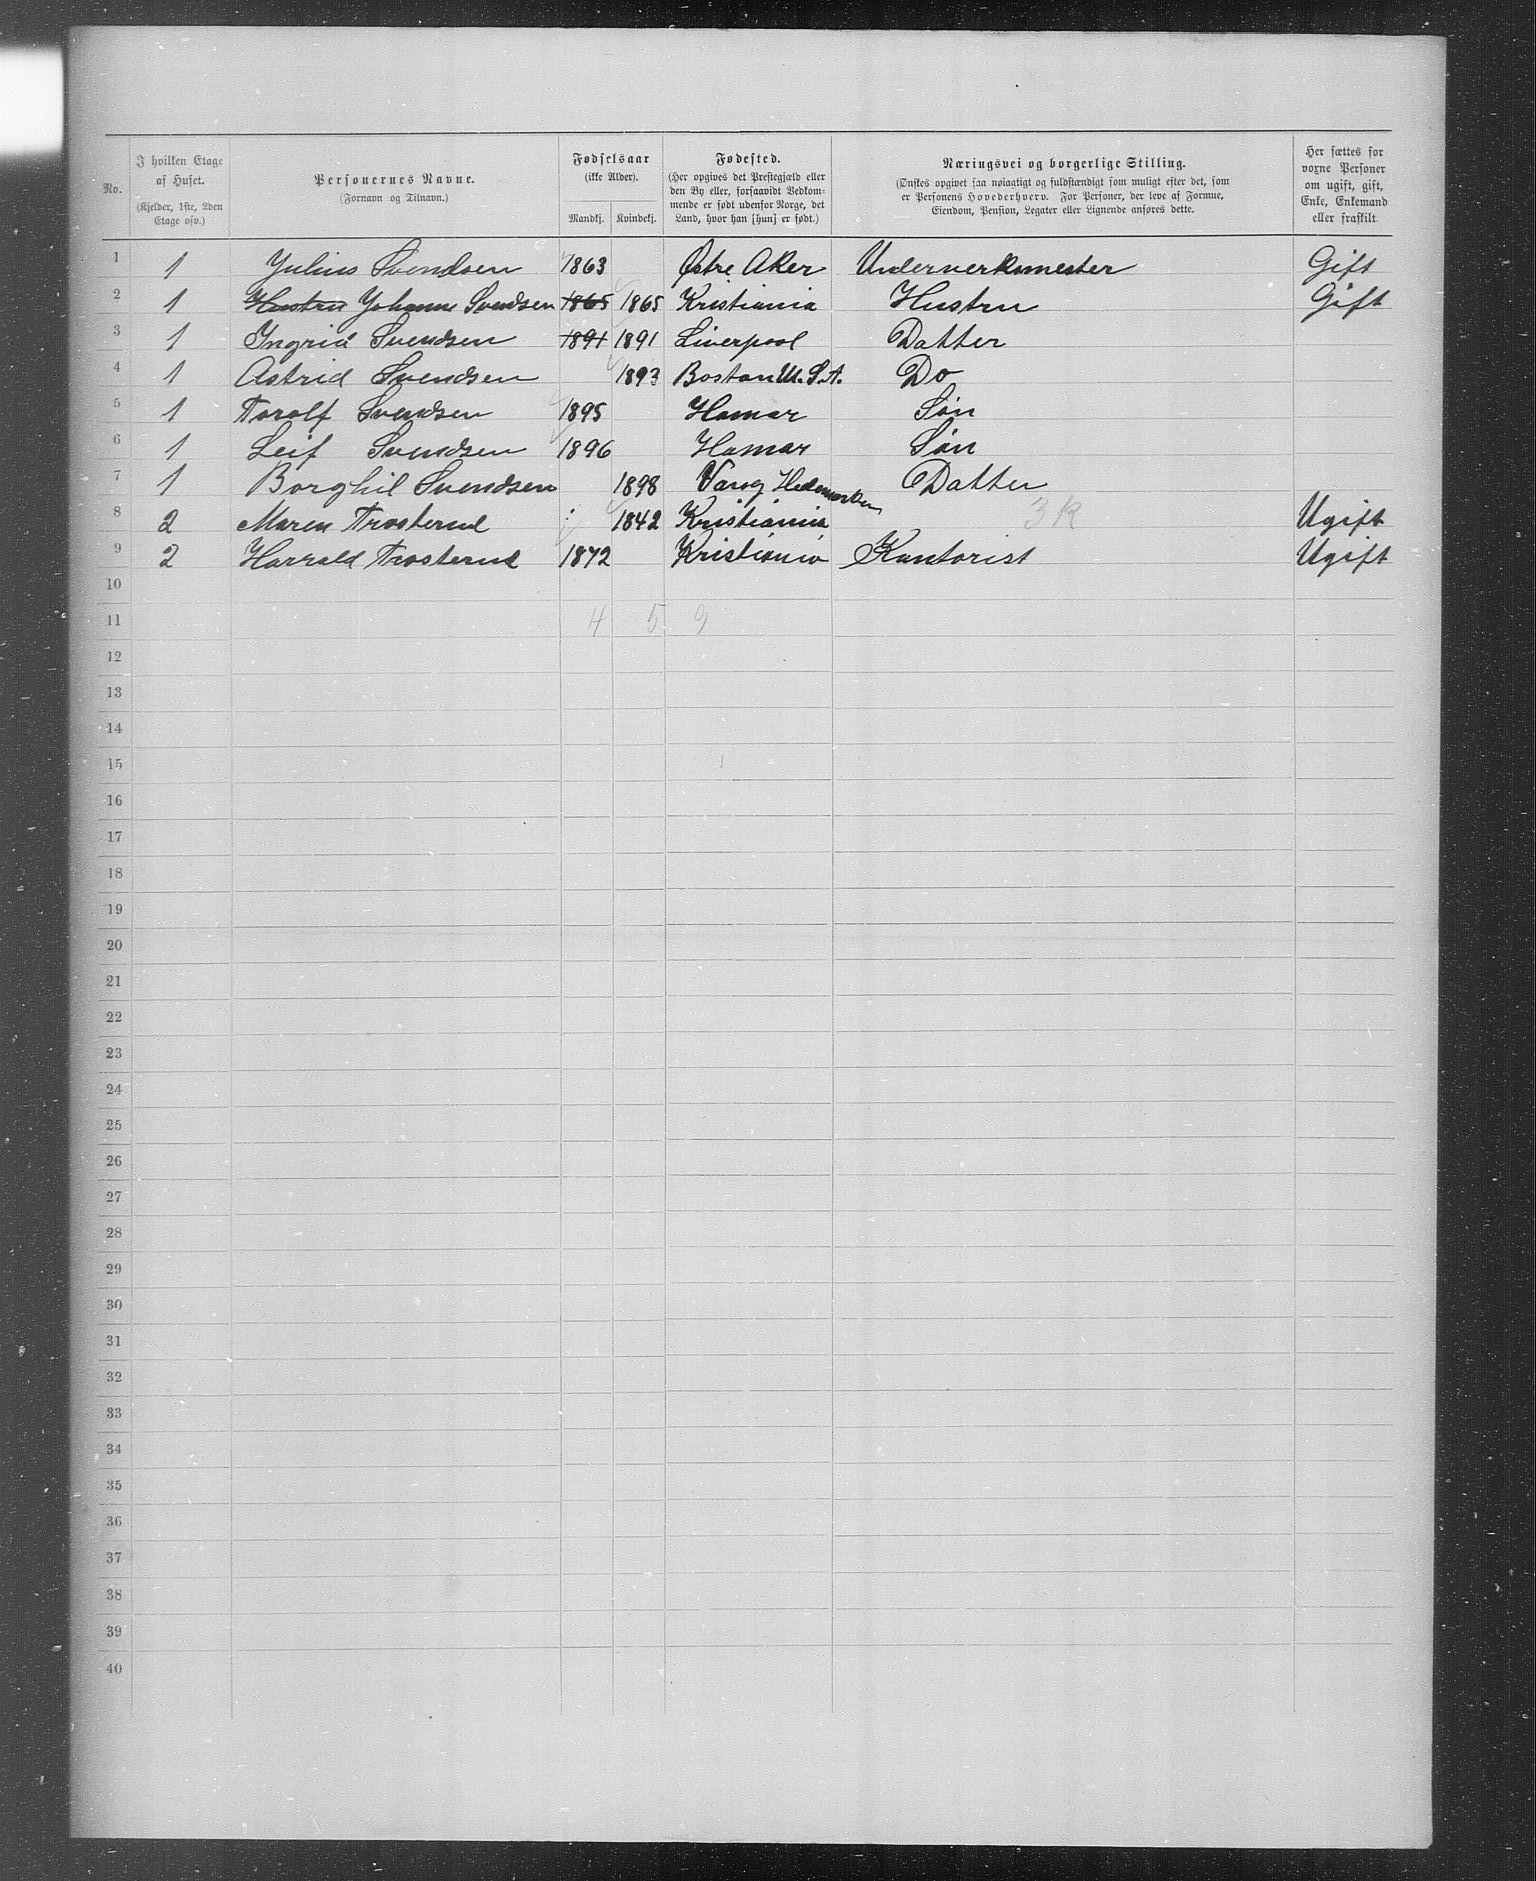 No. | I hvilken Etage af Huset. (Kjelder, 1ste, 2den Etage osv.) | Personernes Navne. (Fornavn og Tilnavn.) | Fødselsaar (ikke Alder). Mandkj. | Kvindekj. | Fødested. (Her opgives det Prestegjæld eller den By eller, forsaavidt Vedkommende er født udenfor Norge, det Land, hvor han [hun] er født.) | Næringsvei og borgerlige Stilling. (Ønskes opgivet saa nøiagtigt og fuldstændigt som muligt efter det, som er Personens Hovederhverv. For Personer, der leve af Formue, Eiendom, Pension, Legater eller Lignende anføres dette. | Her sættes for voxne Personer om ugift, gift, Enke, Enkemand eller fraskilt.
1 | 1 | Julius Svendsen | 1863 | | Østre Aker | Underverksmester | Gift
2 | 1 | Hustru Johanne Svendsen | 1865 | 1865 | Kristiania | Hustru | Gift
3 | 1 | Ingrid Svendsen | 1891 | 1891 | Liverpool | Datter
4 | 1 | Astrid Svendsen | | 1893 | Boston U.S.A. | Do
5 | 1 | Torolf Svendsen | 1895 | | Hamar | Søn
6 | 1 | Leif Svendsen | 1896 | | Hamar | Søn
7 | 1 | Borghil Svendsen | | 1898 | Vang Hedemarken | Datter
8 | 2 | Maren Trosterud | | 1842 | Kristiania | 3K | Ugift
9 | 2 | Harrald Trosterud | 1872 | | Kristiania | Kontorist | Ugift
10
11 | | | 4 | 5 | 9
12
13
14
15
16
17
18
19
20
21
22
23
24
25
26
27
28
29
30
31
32
33
34
35
36
37
38
39
40